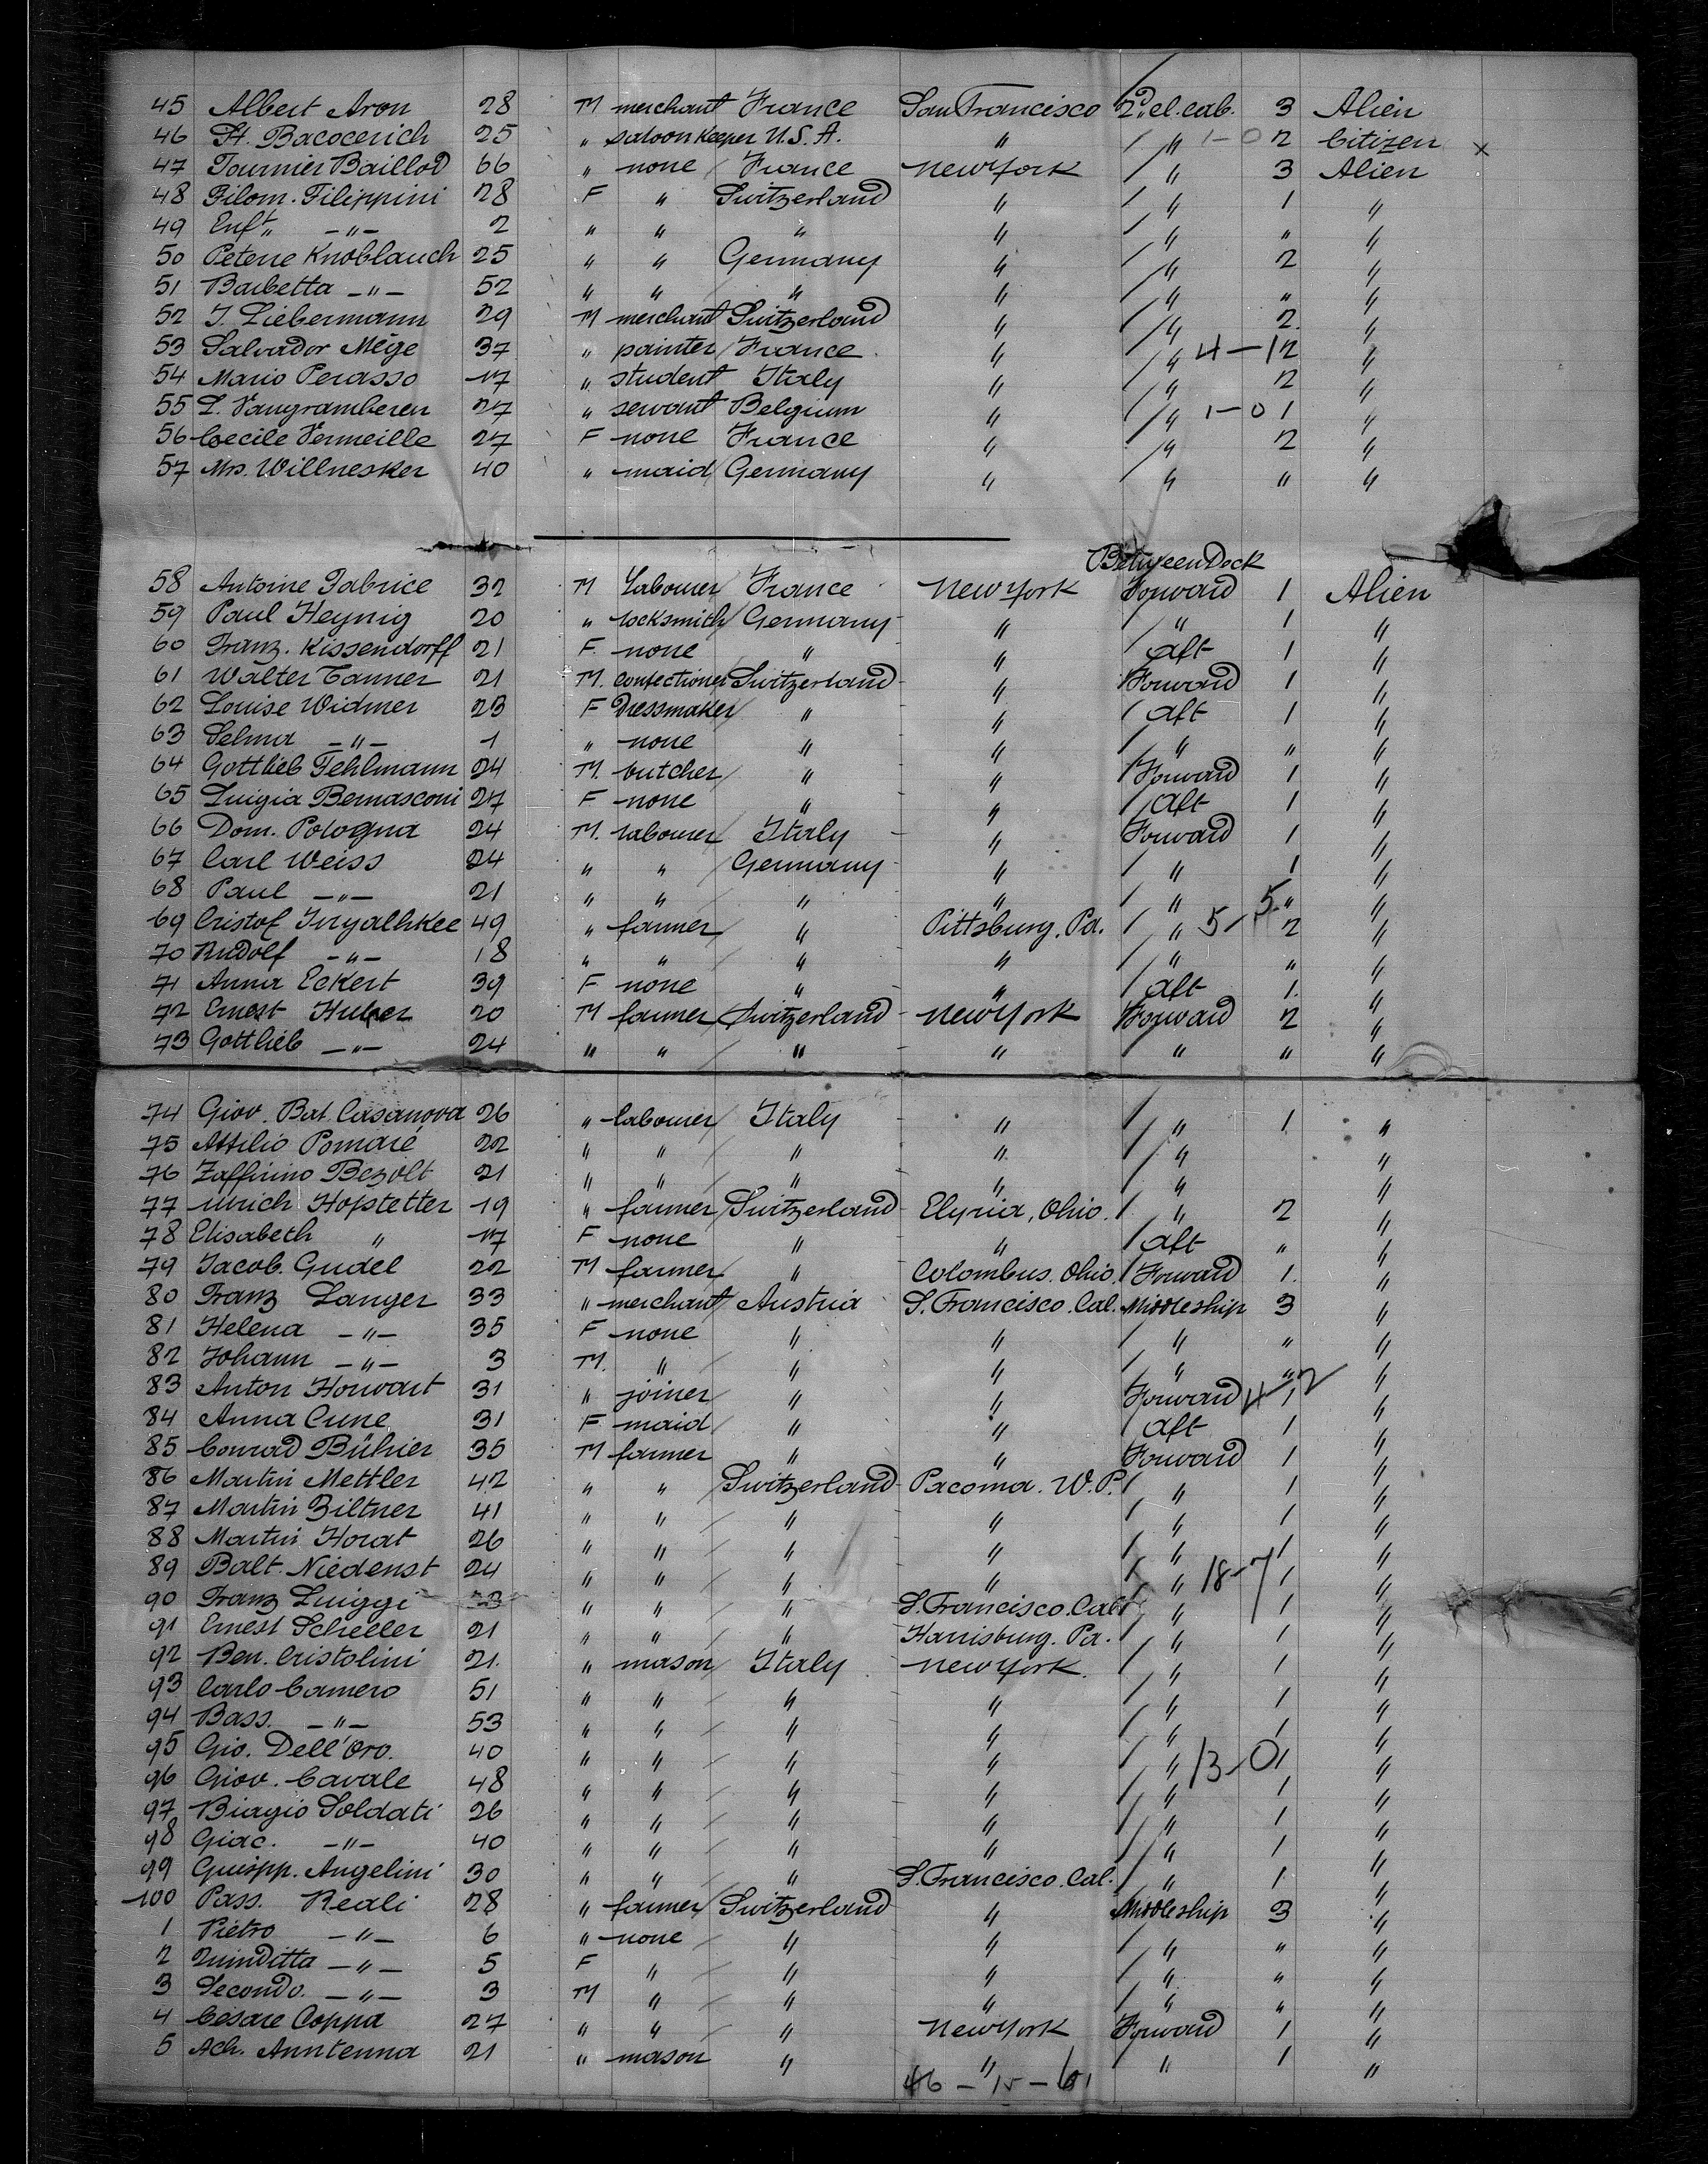 45 Albert Aron 28 M merchant France San Francisco 2d. cl. cab. 3 Alien
46 St. Bacocerich 25 " saloon Keeper U.S.A. " " 1-0 2 Citizen x
47 Tournier Baillod 66 " none France New York " 3 Alien
48 Filom. Filippini 28 F " Switzerland " " 1 "
49 Enft " -"- 2 " " " " " " "
50 Petene Knoblauch 25 " " Germany " " 2 "
51 Barbetta -"- 52 " " " " " " "
52 J. Liebermann 29 M merchant Switzerland " " 2. "
53 Salvador Mége 37 " painter France " " 4-1 2 "
54 Mario Perasso 17 " student Italy " " 2 "
55 L. Vangramberen 27 " servant Belgium " " 1-0 1 "
56 Cecile Vermeille 27 F none France " " 2 "
57 Mrs. Willnesker 40 " maid Germany " " " "
Between Deck
58 Antoine Fabrice 32 M Labourer France New York Forward 1 Alien
59 Paul Heynig 20 " locksmith Germany " " 1 "
60 Franz. Kissendorff 21 F. none " " aft 1 "
61 Walter Tanner 21 M. confectioner Switzerland " Forward 1 "
62 Louise Widmer 23 F Dressmaker " " aft 1 "
63 Selma -"- 1 " none " " " " "
64 Gottlieb Fehlmann 24 M. butcher " " Forward 1 "
65 Luigia Bernasconi 27 F none " " aft 1 "
66 Dom. Pologna 24 M. labourer Italy " Forward 1 "
67 Carl Weiss 24 " " Germany " " 1 "
68 Paul -"- 21 " " " " " " "
69 Cristof 49 " farmer " Pittsburg. Pa. " 5-5 2 "
70 Rudolf -"- 18 " " " " " " "
71 Anna Eckert 39 F none " " aft 1. "
72 Ernest Huber 20 M farmer Switzerland New York Forward 2 "
73 Gottlieb -"- 24 " " " " " " "
74 Giov. Bat. Casanova 26 " labourer Italy " " 1 "
75 Attilio Pomaré 22 " " " " " "
76 Zaffirino Bezolt 21 " " " " " "
77 Ulrich Hofstetter 19 " farmer Switzerland Elyria, Ohio. " 2 "
78 Elisabeth " 17 F none " " aft " "
79 Jacob. Gudel 22 M farmer " Colombus. Ohio. Forward 1. "
80 Franz Langer 33 " merchant Austria S. Francisco. Cal. Middleship 3 "
81 Helena -"- 35 F none " " " " "
82 Johann -"- 3 M. " " " " " "
83 Anton Horwart 31 " joiner " " Forward 4-2 1 "
84 Anna Cune 31 F maid " " aft 1 "
85 Conrad Bühier 35 M farmer " " Forward 1 "
86 Martin Mettler 42 " " Switzerland Pacoma. W.P. " 1 "
87 Martin Ziltner 41 " " " " " 1 "
88 Martin Horat 26 " " " " " 1 "
89 Balt. Niedenst 24 " " " " " 18-7 1 "
90 Franz Luiggi 23 " " " S. Francisco. Cal. " 1 "
91 Ernest Scheller 21 " " " Harrisburg. Pa. " 1 "
92 Ben. Cristolini 21. " mason Italy New York. " 1 "
93 Carlo Camero 51 " " " " " 1 "
94 Bass. -"- 53 " " " " " 1 "
95 Gio. Dell'Oro. 40 " " " " " 13-0 1 "
96 Giov. Cavale 48 " " " " " 1 "
97 Biagio Soldati 26 " " " " " 1 "
98 Giac. -"- 40 " " " " " 1 "
99 Guispp. Angelini 30 " " " S. Francisco. Cal. " 1. "
100 Pass. Reali 28 " farmer Switzerland " Middleship 3 "
1 Pietro -"- 6 " none " " " " "
2 -"- 5 F " " " " " "
3 Secondo. -"- 3 M " " " " " "
4 Césare Coppa 27 " " " New York Forward 1 "
5 Ach. Anntenna 21 " mason " " " 1 "
46 - 15 - 61